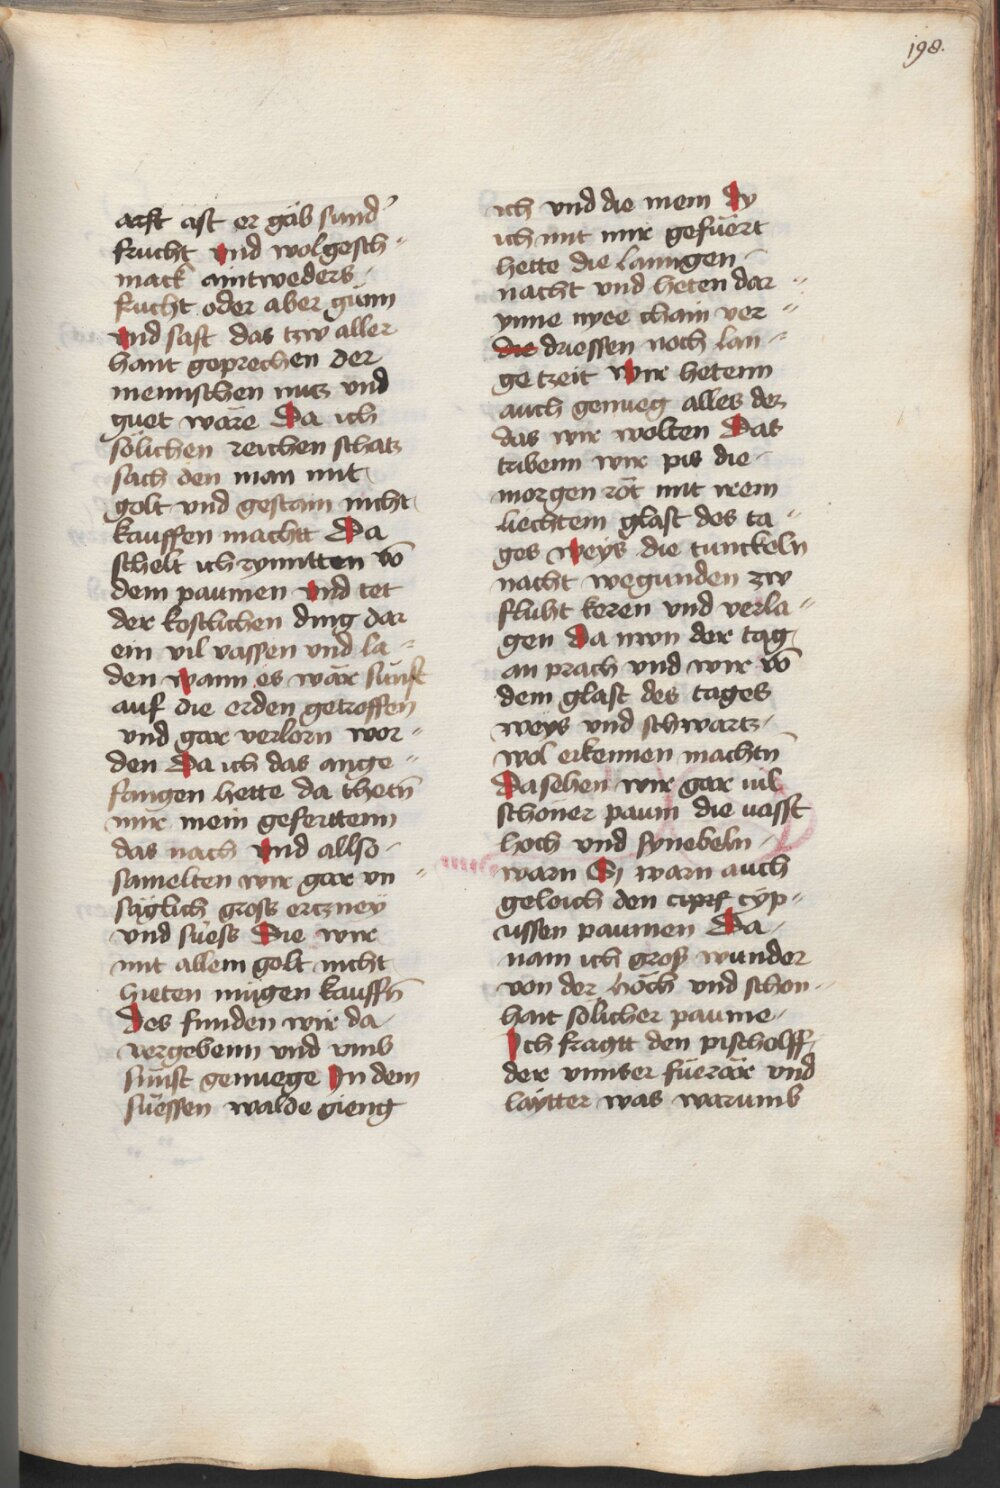 198.
arst ast er gäb sund'
frucht vnd wolgesch-
mack aintweders
frucht oder aber gumi
vnd saft das tzw aller
hant geprechen der
mennschen nutz vnd
guet wäre Da ich
sölichen reichen schatz
sach den man mit
golt vnd gestain nicht
kauffen machtt Da
schelt ich zymitten vō
dem paumen vnd tet
der kostlichen ding dar
ein vil vassen vnd la-
den wann es wär sünst
auf die erden getroffen
vnd gar verlorn wor-
den Da ich das ange-
fangen hette da thetn̄
mir mein geferttenn
das nach vnd allso
samelten wir gar vn-
säglich gross ercznëy
vnd süess Die wir
mit allem golt nicht
hieten mügen kauffn̄
Des funden wir da
vergebenn vnd vmb
sünst genuege In dem
süessen walde gieng
ich vnd die mein Dy
ich mit mir gefüert
hette die lanngen
nacht vnd heten dar-
ynne nyee chain ver-
die driessen noch lan-
ge tzeit Wir hetenn
auch genueg alles dez
das wir wolten Das
tribenn wir pis die
morgen röt mit irem
liechtem glast des ta-
ges weys die tunckeln
nacht wegunden zw
fluht keren vnd verla-
gen Da nwn der tag
an prach vnd wir vō
dem glast des tages
weys vnd schwartz
wol erkennen machtn̄
Da sehen wir gar vil
schöner paum die vasst
hoch vnd synebeln
warn Si warn auch
geleich den ciprs cyp-
ussen paumen Da
nam ich groß wunder
von der höch vnd schon-
hait sölicher paume
Ich fragtt den pischolff
der vnnser füerär vnd
laytter was warumb